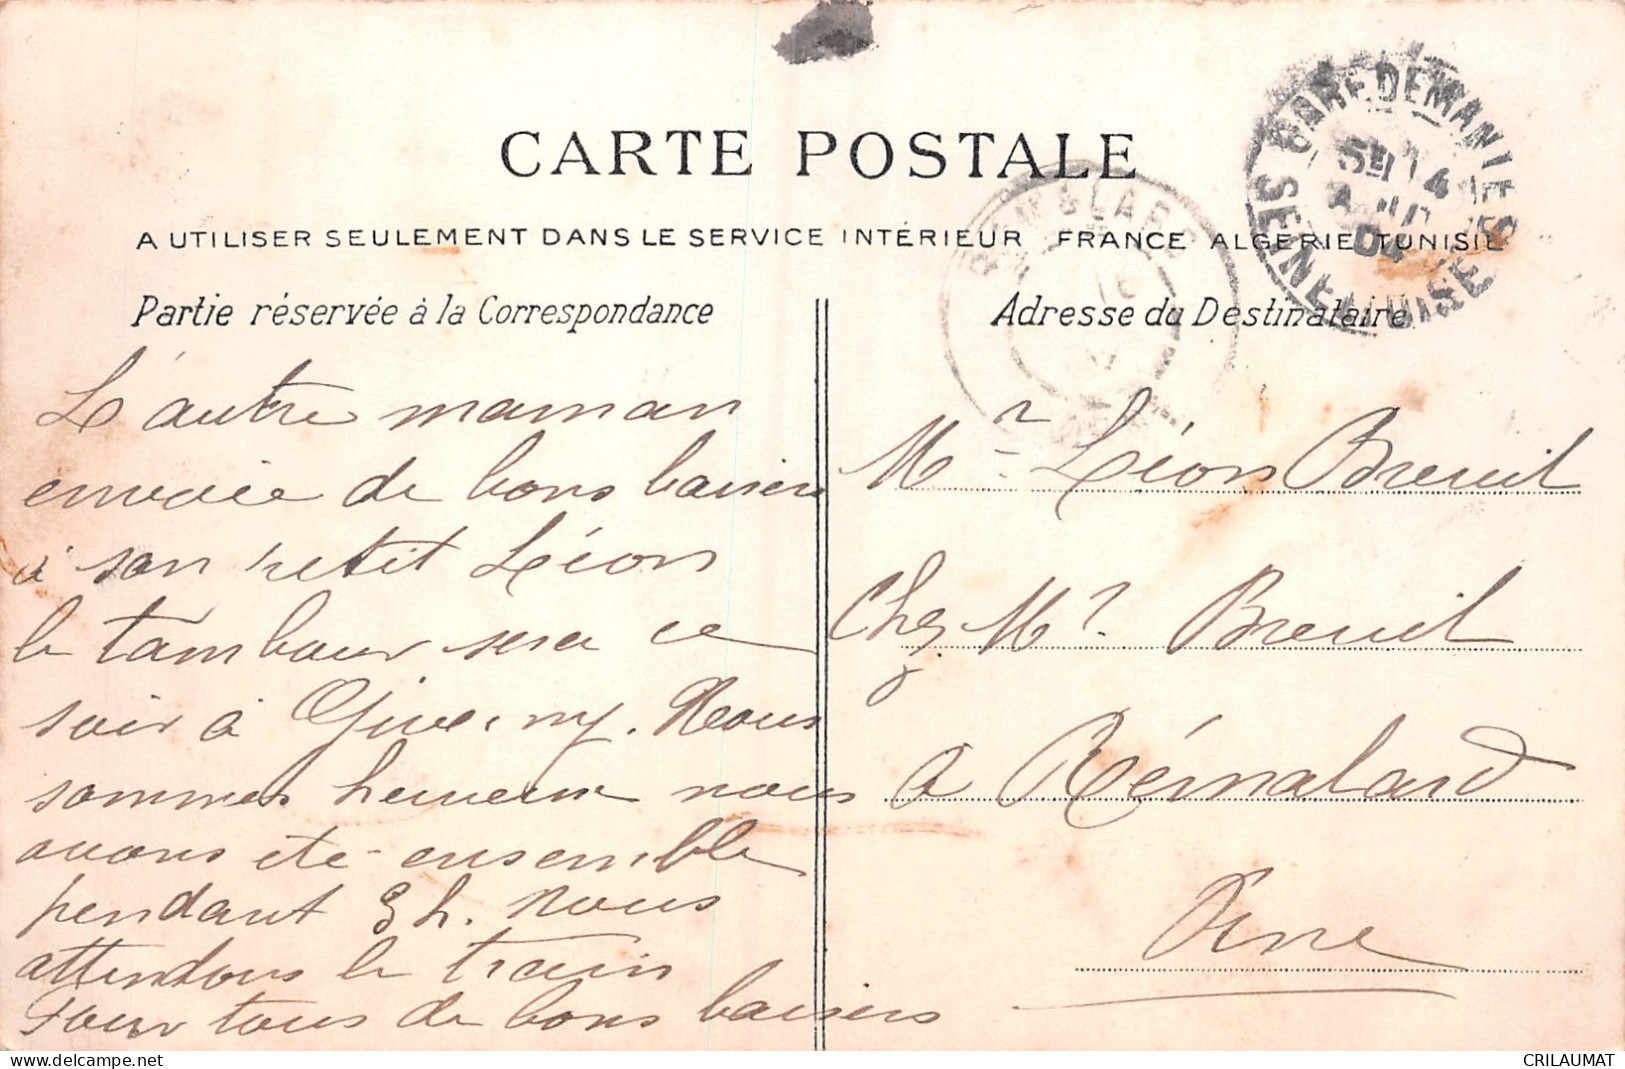 CARTE POSTALE
A UTILISER SEULEMENT DANS LE SERVICE INTÉRIEUR FRANCE ALGERIE TUNISIE
Partie réservée à la Correspondance
L'autre maman
envoie de bons baisers
à son petit Léon
le tambour sera ce
soir à Giverny. Nous
sommes heureux nous
avons été ensemble
pendant 3 h. Nous
attendons le train
Pour tous de bons baisers
Adresse du Destinataire
Mr Léon Breuil
Chez Mr Breuil
à Rémalard
Orne
GARE DE MANTES
SEINE-ET-OISE
5E 14
04
DELCAMPE
CRILAUMAT